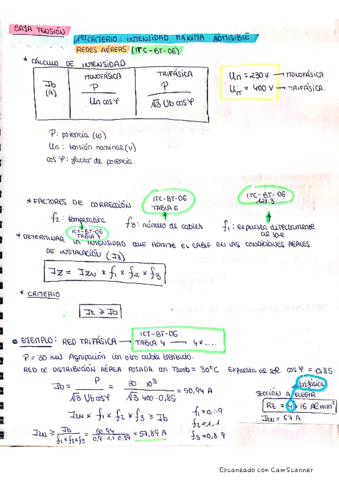 BAJA TENSIÓN
1er CRITERIO: INTENSIDAD MÁXIMA ADMISIBLE
REDES AÉREAS (ITC-BT-06)
* CÁLCULO DE INTENSIDAD
MONOFÁSICA TRIFÁSICA
Ib (A) P / Un cosφ P / √3 Ub cosφ
Un = 230 V → MONOFÁSICA
Un = 400 V → TRIFÁSICA
P: potencia (w)
Un: tensión nominal (v)
cos φ: factor de potencia.
* FACTORES DE CORRECCIÓN
ITC-BT-06 TABLA 6
ITC-BT-06
f2: temperatura f3: número de cables f1: expuesta directamente al sol
ITC-BT-06 TABLA 7
* DETERMINAR LA INTENSIDAD QUE ADMITE EL CABLE EN LAS CONDICIONES REALES
DE INSTALACIÓN (Iz)
Iz = Izn × f1 × f2 × f3
* CRITERIO
Iz ≥ Ib
EJEMPLO: RED TRIFÁSICA → ITC-BT-06 TABLA 4 → 4x....
P = 30 kW Agrupación con otro cable trenzado.
RED DE DISTRIBUCIÓN AÉREA POSADA con Tamb = 30ºC. Expuesta al sol cos φ = 0.85
Ib = P / √3 Ub cosφ = 30 · 10³ / √3 · 400 · 0,85 = 50,94 A
trifásica
SECCIÓN A ELEGIR
RZ = 4 x 16 Al mm²
Izn = 67 A
Izn × f1 × f2 × f3 ≥ Ib
f1 = 0.9
f2 = 1.1
f3 = 0.89
Izn ≥ Ib / f1·f2·f3 = 50.94 / 0,9·1.1·0.89 = 57,89 A
Escaneado con CamScanner